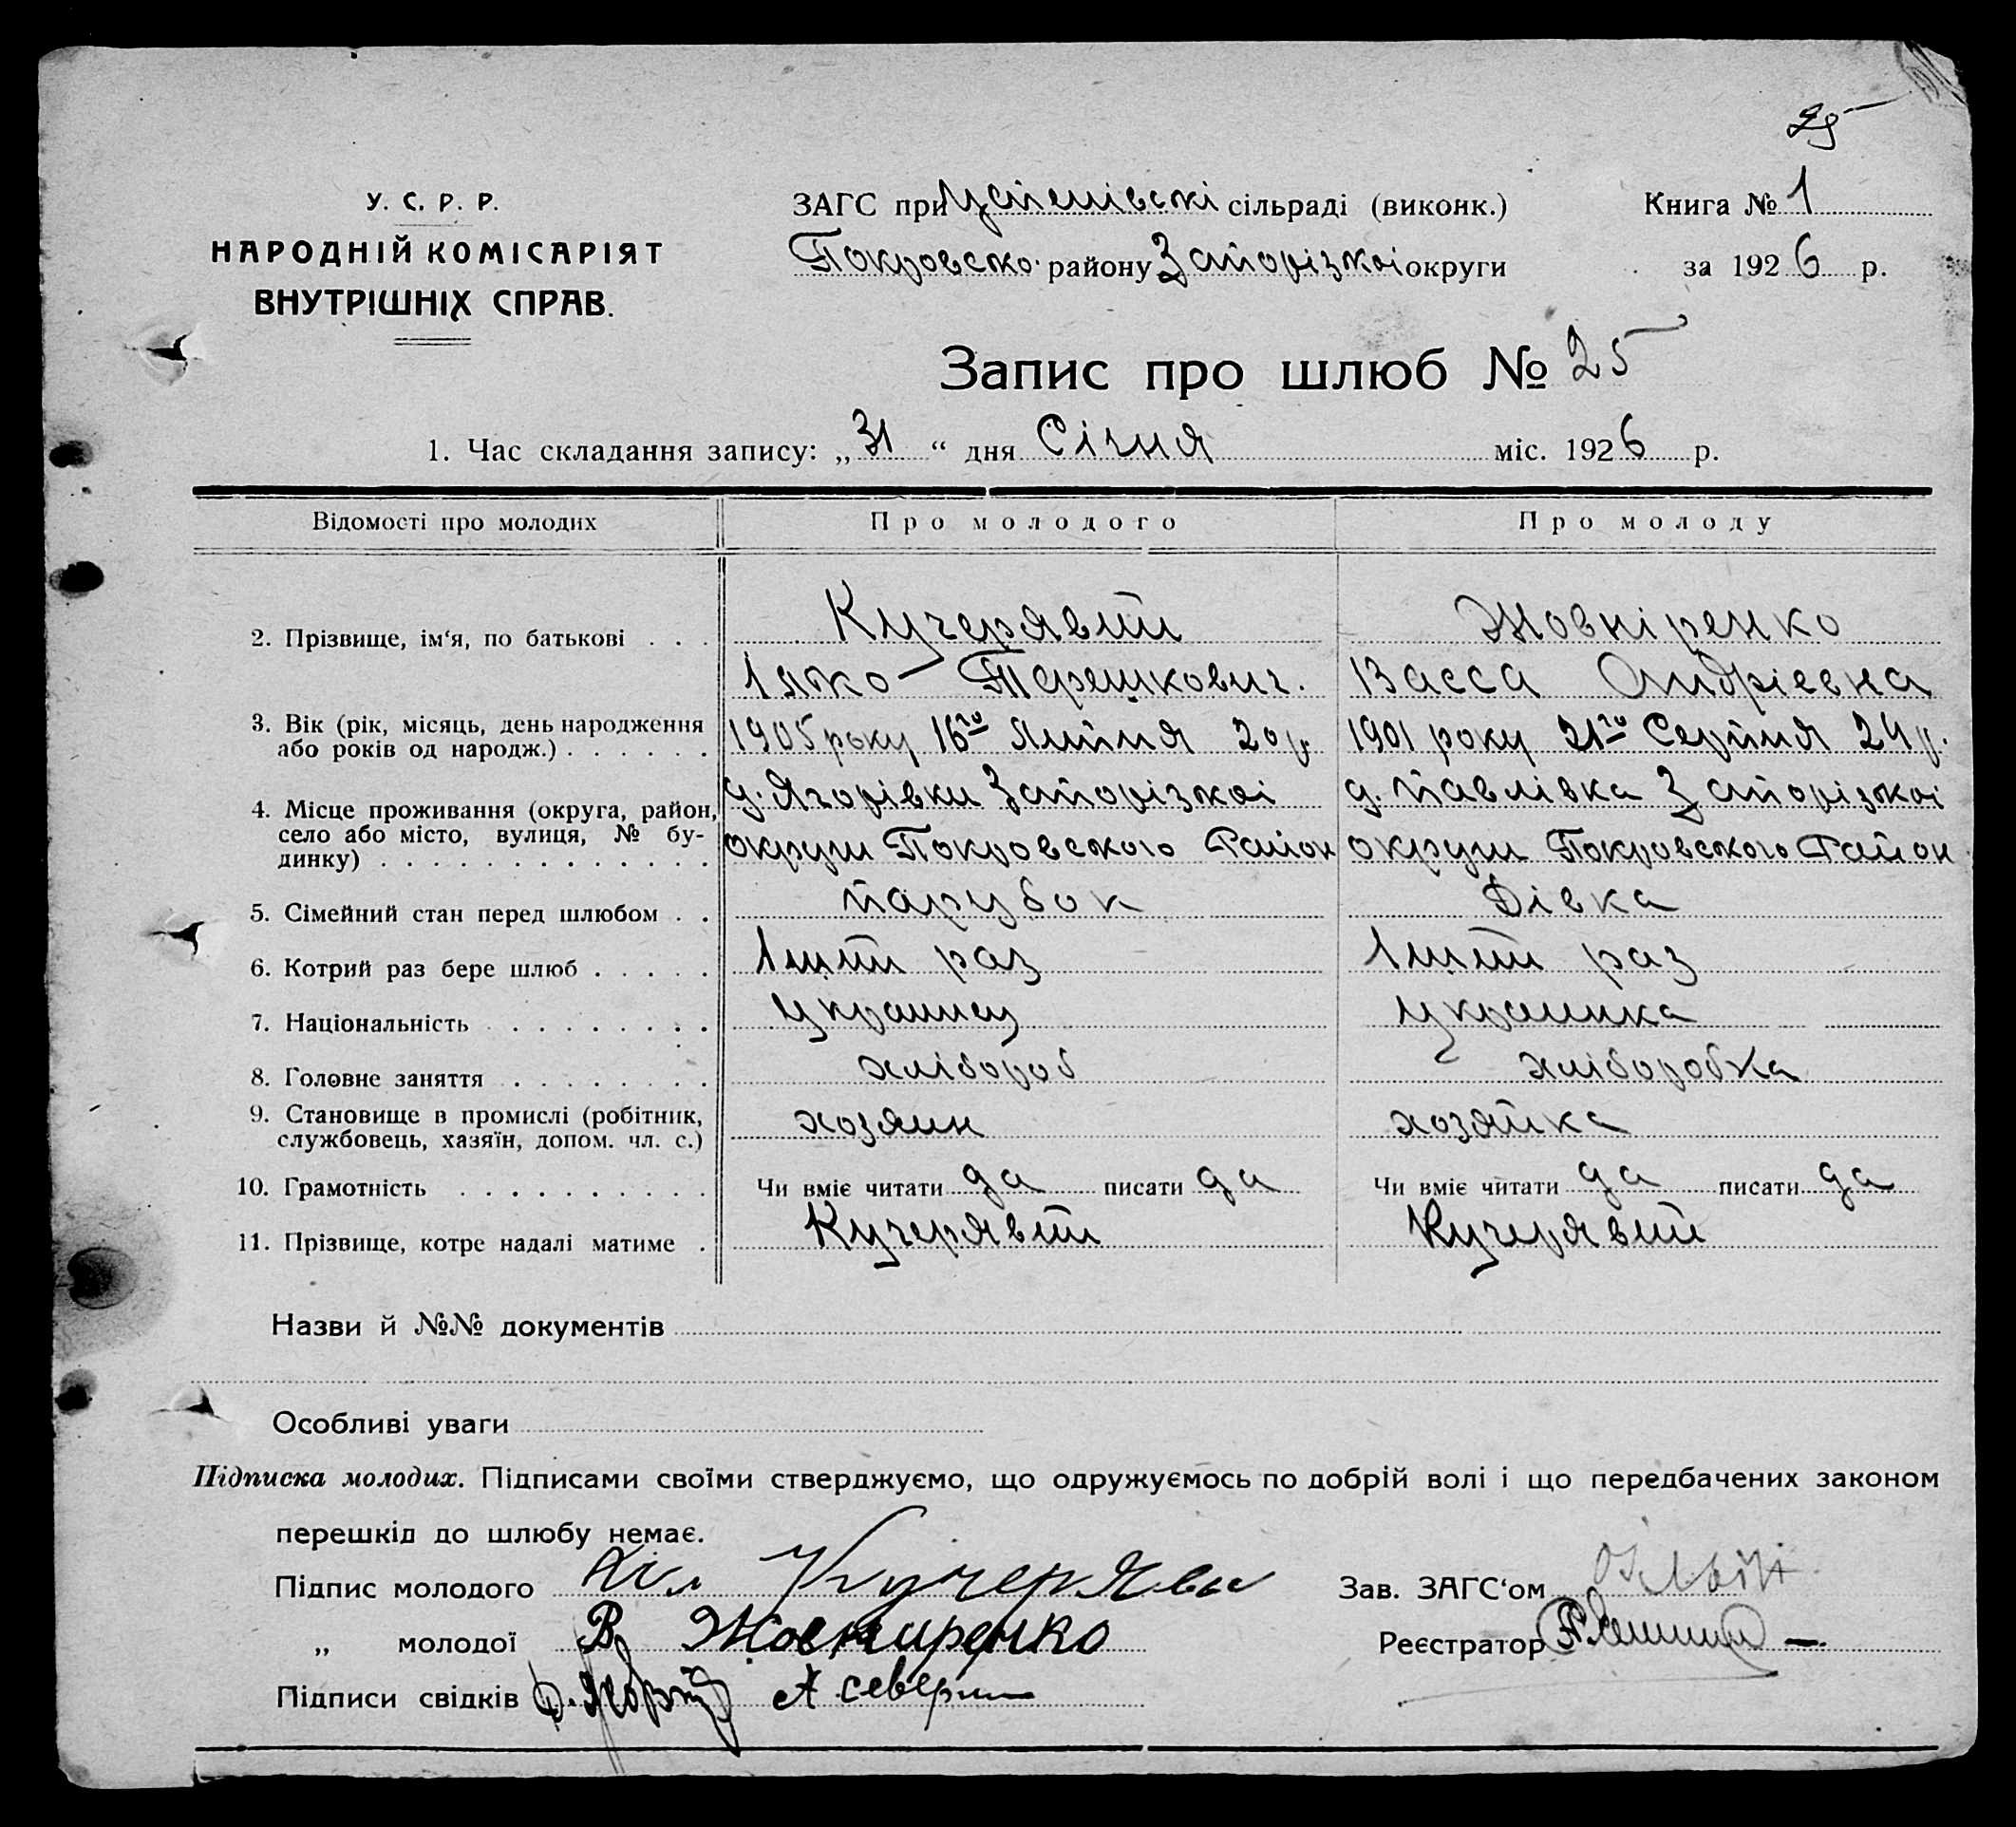 25
У. С. Р. Р.
НАРОДНІЙ КОМІСАРІЯТ
ВНУТРІШНІХ СПРАВ.
ЗАГС при Успенівські сільраді (виконк.)
Покровско. району Запорізкоі округи
Книга № 1
за 1926 р.
Запис про шлюб № 25
1. Час складання запису: „31“ дня Січня міс. 1926 р.
Відомості про молодих
Про молодого
Про молоду
2. Прізвище, ім‘я, по батькові . . .
Кучерявий
Терешкович.
Жовніренко
Васса Андріевна
3. Вік (рік, місяць, день народження
або років од народж.) . . . . . .
1905 року 16го Липня 20 р.
1901 року 21го Серпня 24 р.
4. Місце проживання (округа, район,
село або місто, вулиця, № бу-
динку) . . . . . . . . . . . . .
д. Ягорівки Запорізкоі
округи Покровского Район
д. Павлівка Запорізкоі
округи Покровского Район
5. Сімейний стан перед шлюбом . .
парубок
Дівка
6. Котрий раз бере шлюб . . . . .
1ший раз
1ший раз
7. Національність . . . . . . . . .
Украинец
Украинка
8. Головне заняття . . . . . . . .
хлібороб
хліборобка
9. Становище в промислі (робітник,
службовець, хазяїн, допом. чл. с.)
хозяин
хозяйка
10. Грамотність . . . . . . . . . .
Чи вміє читати да писати да
Чи вміє читати да писати да
11. Прізвище, котре надалі матиме .
Кучерявий
Кучерявий
Назви й №№ документів
Особливі уваги
Підписка молодих. Підписами своїми стверджуємо, що одружуємось по добрій волі і що передбачених законом
перешкід до шлюбу немає.
Підпис молодого Кучерявы
Зав. ЗАГС‘ом
„ молодої В Жовниренко
Реєстратор
Підписи свідків